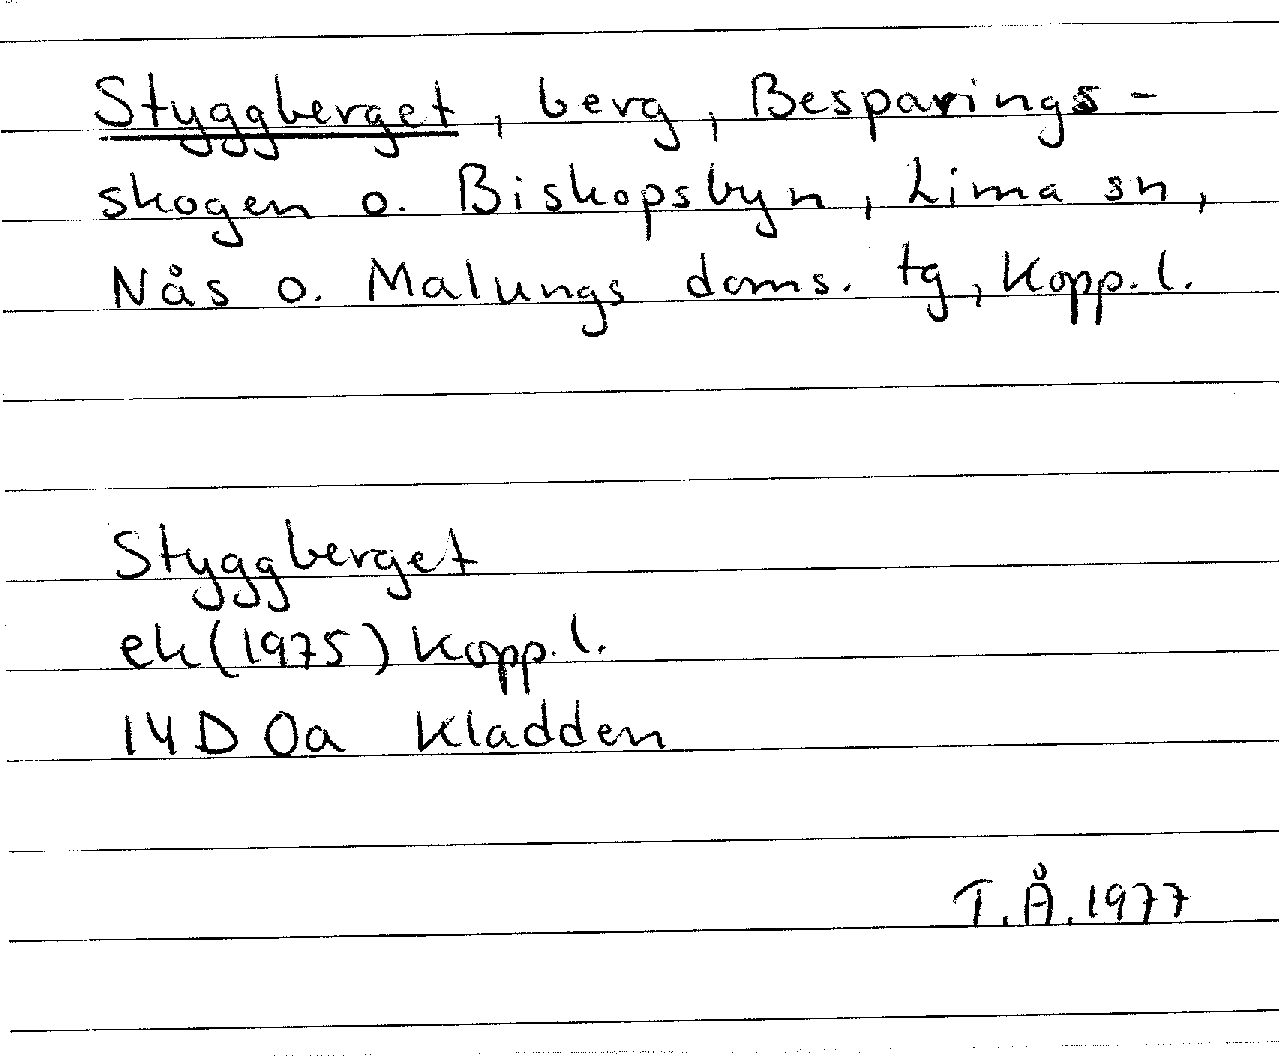 Styggberget, berg, Besparings-
skogen o. Biskopsbyn, Lima sn,
Nås o. Malungs doms. tg, Kopp. l.
Styggberget
ek (1975) Kopp. l.
14D 0a Kladden
T.Å. 1977